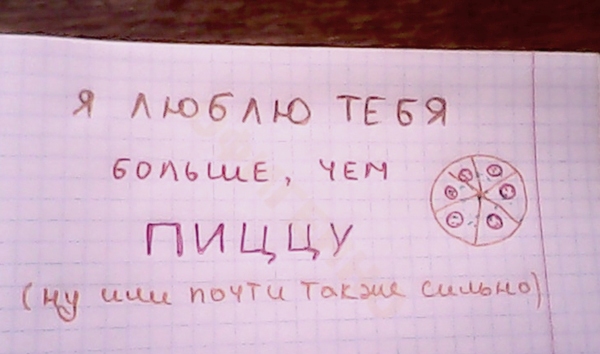 Я ЛЮБЛЮ ТЕБЯ
БОЛЬШЕ, ЧЕМ
ПИЦЦУ
(ну или почти также сильно)